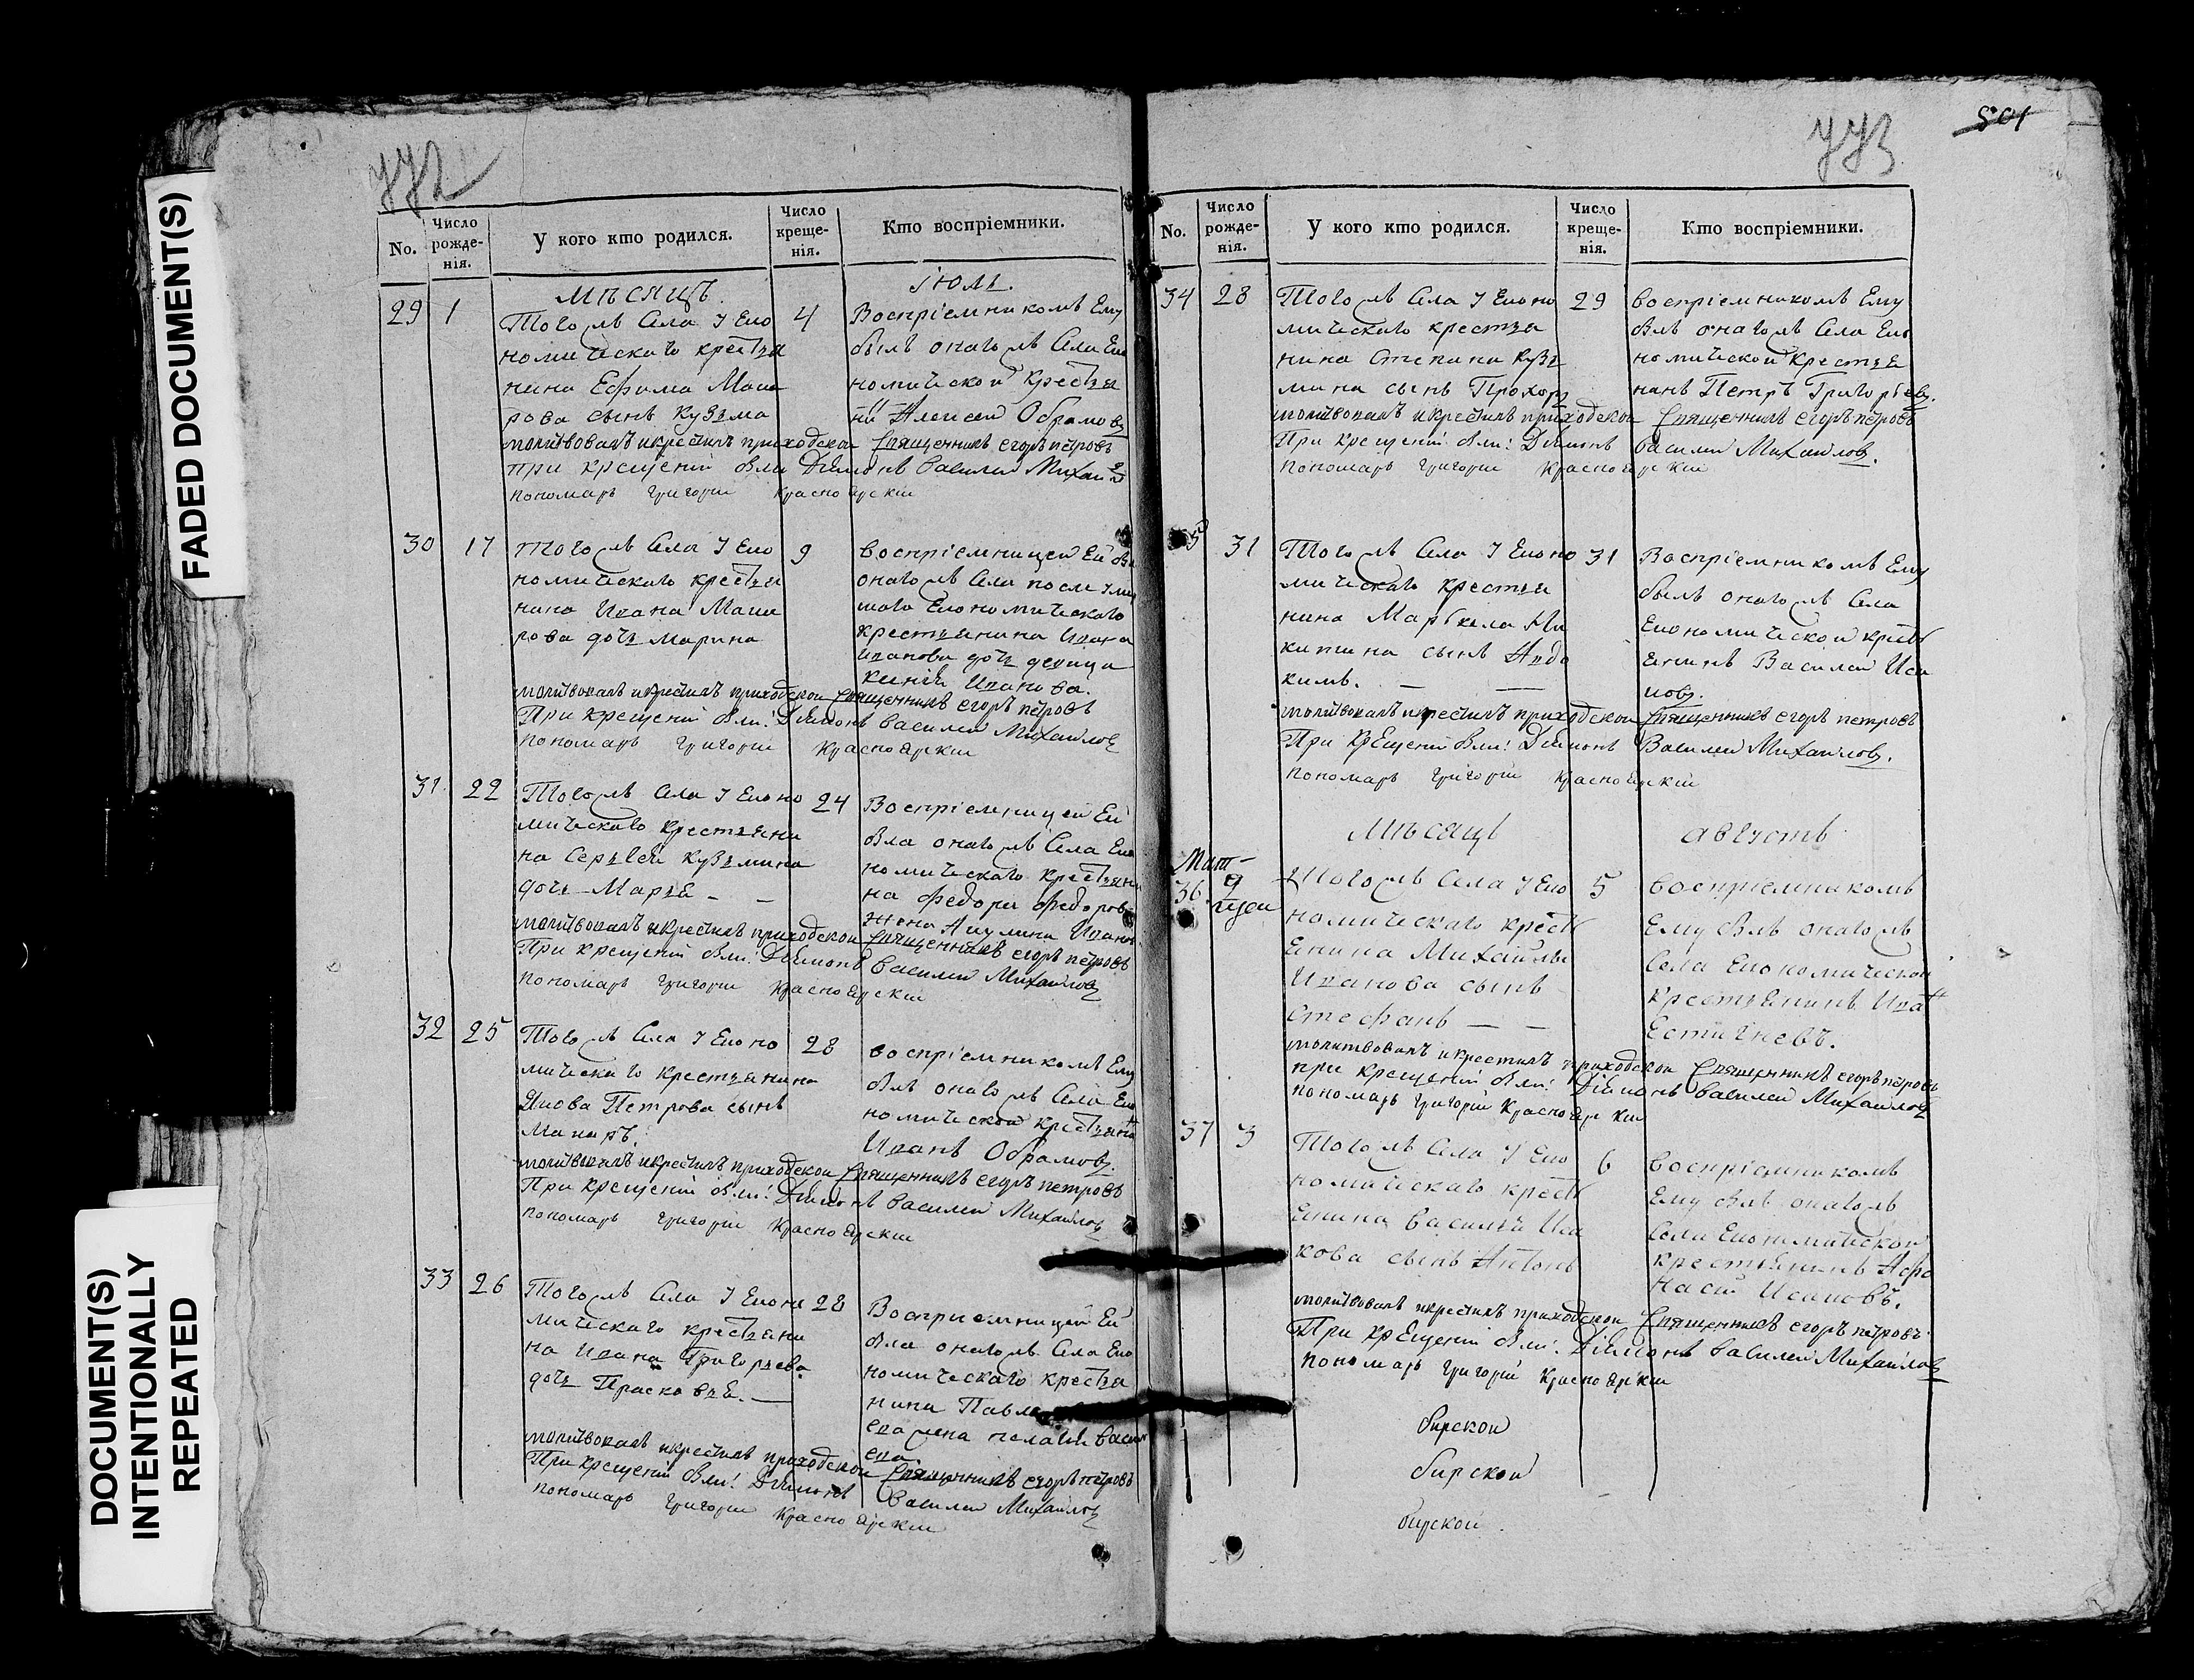 FADED DOCUMENT(S)
DOCUMENT(S)
INTENTIONALLY
REPEATED
No.
Число рожде-нія.
У кого кто родился.
Число креще-нія.
Кто воспріемники.
Мѣсяцъ Іюль.
29 1
Тогожъ Села Іеко
номическаго крестья
нина Ефима Мака
рова сынъ Кузьма
4
Воспріемникомъ Ему
былъ онагожъ Села Еко
номической крестья
нинъ Алексеи Обрамовъ
молитвовалъ икрестилъ приходскои Священникъ егоръ петровъ
при крещеніи были Діаконъ Василеи Михаиловъ
пономарь григории красноярскіи
30 17
Тогожъ Села Іеко
номическаго крестья
нина Ивана Мака
рова дочь марина
9
воспріемницеи Ей была
онагожъ Села
Економическаго
крестьянина Ивана
Иванова дочь девица
Иванова.
молитвовалъ икрестилъ приходскои Священникъ егоръ петровъ
При крещеніи были: Діаконъ василеи Михаиловъ
пономарь григории красноярскіи
31 22
Тогожъ Села Іеконо
мическаго крестьяни
на Сергѣй кузьмина
дочь Марья - -
24
Воспріемницеи Ей
была онагожъ Села Еко
номическаго крестьяни
на Федора Федоров
жена Акулина Иванов
молитвовалъ икрестилъ приходскои Священникъ егоръ петровъ
При крещеніи были: Діаконъ василеи Михаиловъ
пономарь григории красноярскіи
32 25
Тогожъ Села Іеконо
мическаго крестьянина
Якова Петрова сынъ
Макаръ.
28
воспріемникомъ Ему
былъ онагожъ Села Еко
номической крестьянинъ
Иванъ Обрамовъ.
молитвовалъ икрестилъ приходскои Священникъ егоръ петровъ
При крещеніи были: Діаконъ василеи Михаиловъ
пономарь григории красноярскіи
33 26
Тогожъ Села Іеконо
мическаго крестьяни
на Ивана Григорьева
дочь Прасковья. —
28
Восприемницей Ей
была онагожъ Села Еко
номическаго крестья
нина Павла
молитвовалъ икрестилъ приходскои Священникъ егоръ петровъ
При крещеніи были: Діаконъ василеи Михаиловъ
пономарь григории красноярскіи
501
No.
Число рожде-нія.
У кого кто родился.
Число креще-нія.
Кто воспріемники.
34 28
Тогожъ Села Іеконо
мическаго крестья
нина Степана Кузь
мина сынъ Прохоръ
29
воспріемникомъ Ему
былъ онагожъ Села Еко
номической крестья
нинъ Петръ Григорьевъ.
молитвовалъ икрестилъ приходскои Священникъ егоръ петровъ
При крещеніи были: Діаконъ василеи Михаиловъ.
пономарь григории красноярскіи
5 31
Тогожъ Села Іеконо
мическаго крестья
нина Маркела Ни
китина сынъ Авдо
кимъ. — —
31
Воспріемникомъ Ему
былъ онагожъ Села
Економической кресть
янинъ Василеи Иса
ковъ.
молитвовалъ икрестилъ приходскои Священникъ егоръ петровъ
При Крещеніи были: Діаконъ Василеи Михаиловъ.
пономарь григории красноярскіи
Мѣсяцъ Августъ
36
Тогожъ Села Іеко
номическаго кресть
янина Михайлы
Иванова сынъ
Стефанъ — —
5
воспріемникомъ
Ему былъ онагожъ
Села Економической
крестьянинъ Иванъ
молитвовалъ икрестилъ приходскои Священникъ егоръ петровъ
при крещеніи были: Діаконъ василеи Михаиловъ
пономарь григорій Красноярскіи
37 3
Тогожъ Села Іеко
номическаго кресть
янина василья Иса
кова сынъ Антонъ
6
воспріемникомъ
Ему былъ онагожъ
Села Економической
крестьянинъ Афа
насій Исаковъ.
молитвовалъ икрестилъ приходскои Священникъ егоръ петровъ
При крещеніи были: Діаконъ василеи Михаиловъ
пономарь григорій красноярскіи
бирской
бирской
бирской